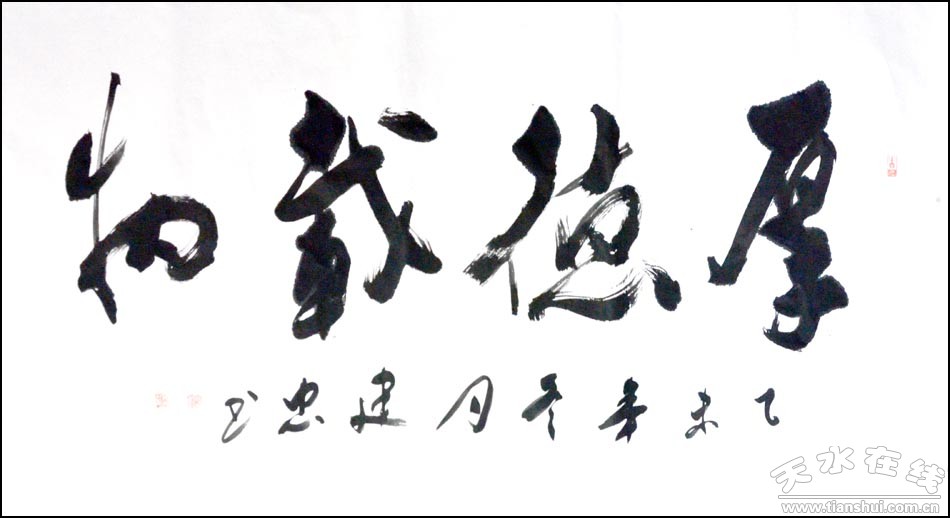 厚德载物
乙未年冬月建忠书
天水在线
www.tianshui.com.cn